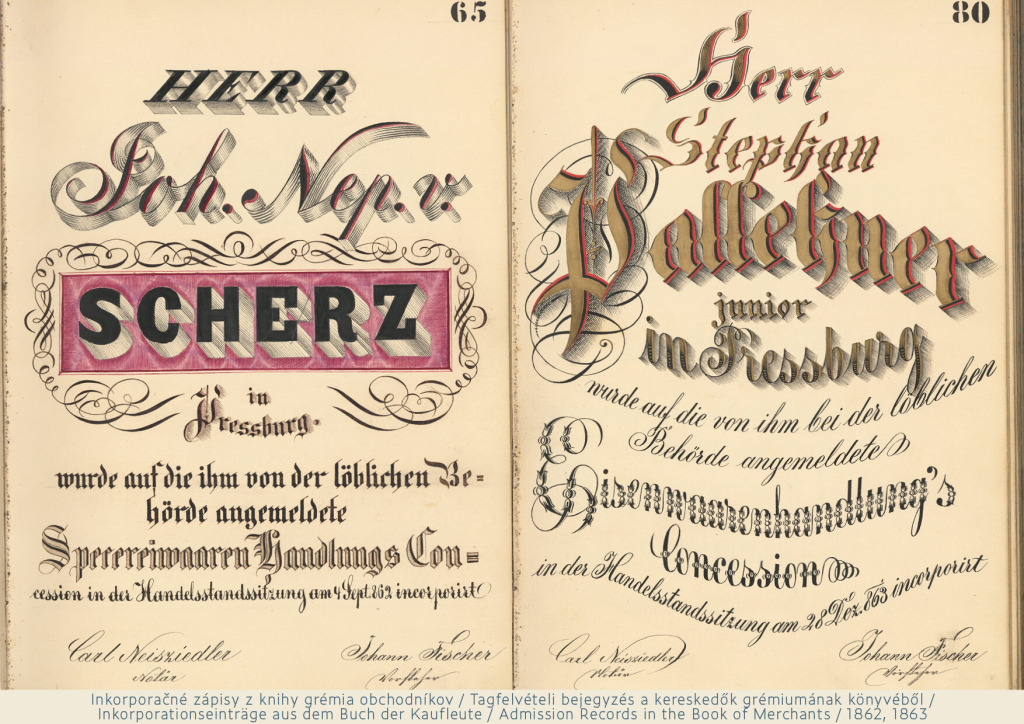 65
HERR
Joh. Nep. v.
SCHERZ
in
Pressburg.
wurde auf die ihm von der löblichen Be=
hörde angemeldete
Specereiwaaren Handlungs Con=
cession in der Handelsstandssitzung am 4 Sept. 862 incorporirt
Carl Neisziedler
Notär
Johann Fischer
Vorsteher
80
Herr
Stephan
Pallehner
junior
in Pressburg
wurde auf die von ihm bei der löblichen
Behörde angemeldete
Eisenwaarenhandlung's
Concession
in der Handelsstandssitzung am 28 Dez. 863 incorporirt
Carl Neisziedler
Notär
Johann Fischer
Vorsteher
Inkorporačné zápisy z knihy grémia obchodníkov / Tagfelvételi bejegyzés a kereskedők grémiumának könyvéből /
Inkorporationseinträge aus dem Buch der Kaufleute / Admission Records in the Book of Merchants / 1862, 1863